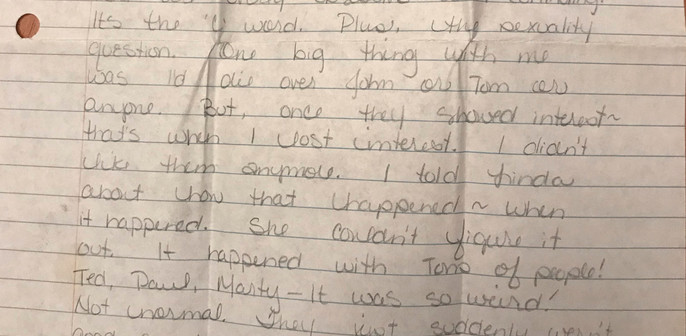 It's the "G word. Plus, the sexuality
question. One big thing with me
was Id die over John or Tom or
anyone. But, once they showed interest~
that's when I lost interest. I didn't
like them anymore. I told Linda
about how that happened ~ when
it happened. She couldn't figure it
out. It happened with Tons of people!
Ted, Paul, Marty - It was so weird!
Not normal. They just suddenly weren't